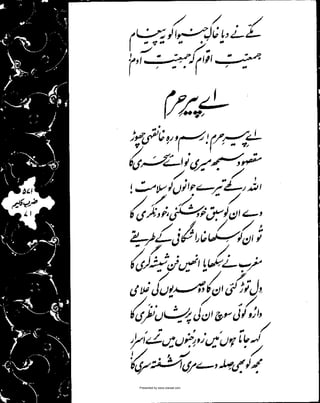 مکے نے دیا خاکِ جنیوا کو یہ پیغام
جمعیتِ اقوام کہ جمعیتِ آدم!
اے پیرِ حرم
اے پیرِ حرم! رسم و رہِ خانقہی چھوڑ
مقصود سمجھ میری نوائے سحری کا
اللہ رکھے تیرے جوانوں کو سلامت!
دے ان کو سبق خود شکنی، خود نگری کا
تو ان کو سکھا خارا شگافی کے طریقے
مغرب نے سکھایا انھیں فن شیشہ گری کا
دل توڑ گئی ان کا دو صدیوں کی غلامی
دارو کوئی سوچ ان کی پریشاں نظری کا
کہہ جاتا ہوں میں زورِ جنوں میں ترے اسرار
مجھ کو بھی صلہ دے مری آشفتہ سری کا!
۵۷۱
ضربِ کلیم
۷۱